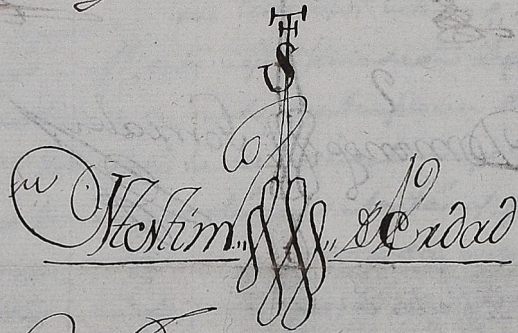 En Testim,,o ,, de Verdad